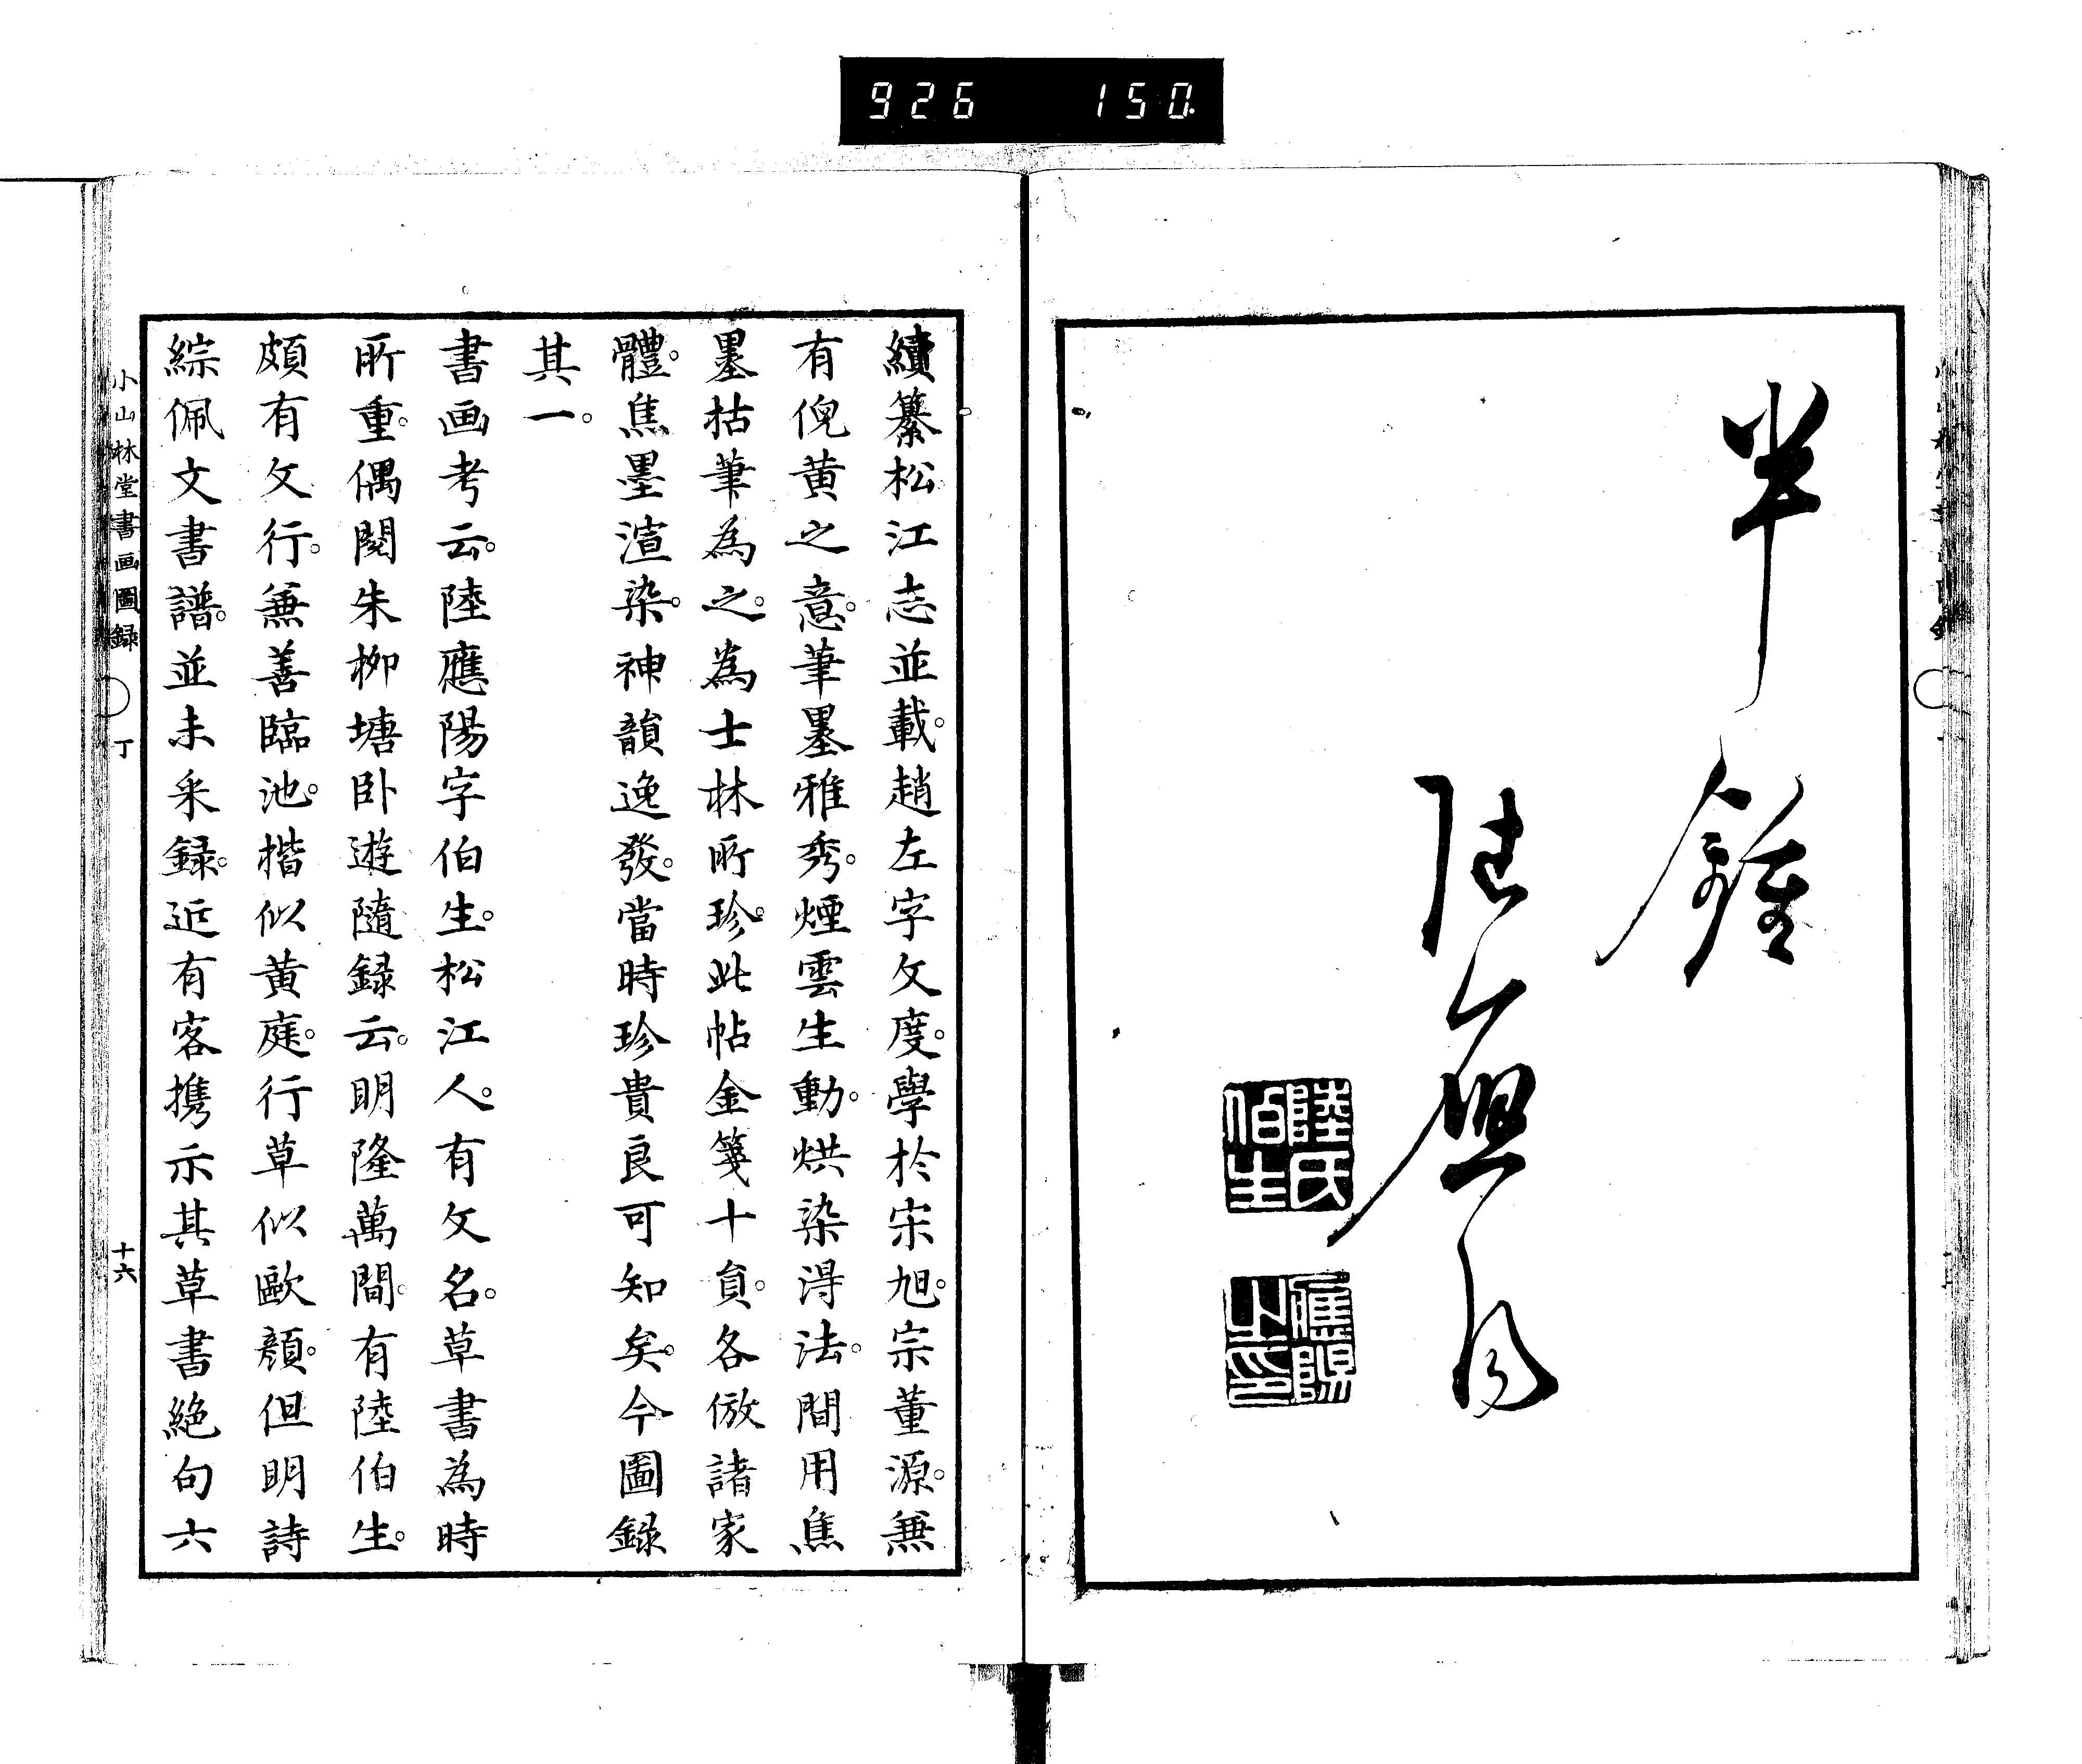 926 150.
半鐘
陸應陽
陸氏伯生
應陽之印
續纂松江志並載。趙左字文度。學於宋旭。宗董源。兼
有倪黃之意。筆墨雅秀。煙雲生動。烘染得法。間用焦
墨枯筆為之。為士林所珍。此帖金箋十頁。各倣諸家
體。焦墨渲染。神韻逸發。當時珍貴良可知矣。今圖錄
其一。
書画考云。陸應陽字伯生。松江人。有文名。草書為時
所重。偶閱朱柳塘卧遊隨錄云。明隆萬間。有陸伯生。
頗有文行。兼善臨池。楷似黃庭。行草似歐顏。但明詩
綜佩文書譜。並未采錄。近有客携示其草書絕句六
小山林堂書画圖錄 丁 十六